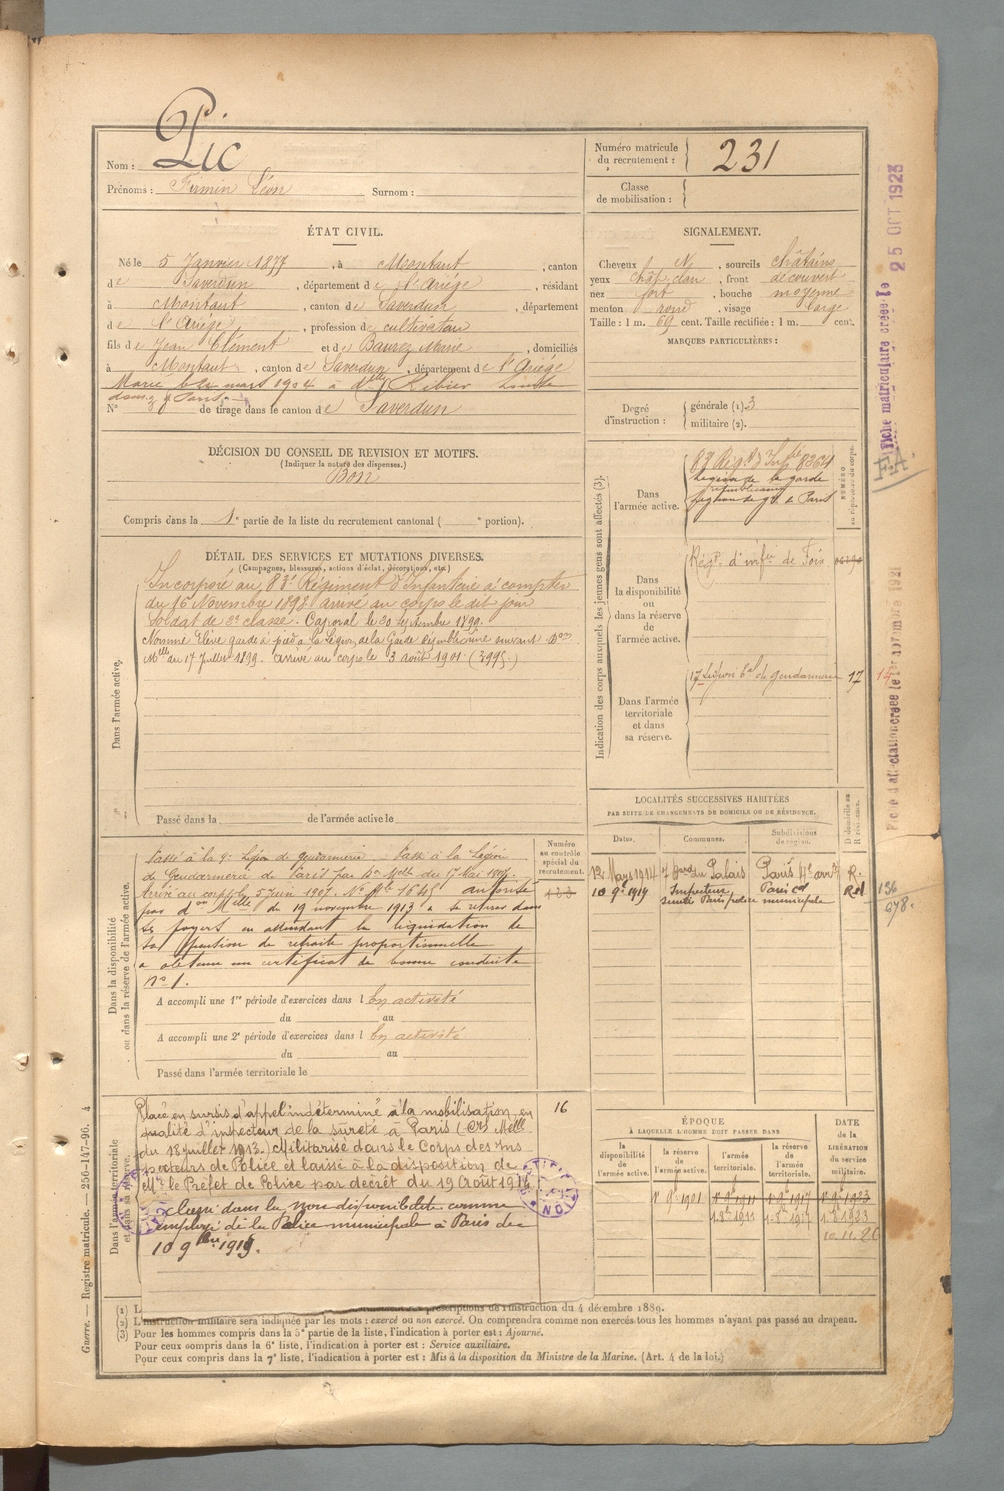 Nom : Pic
Prénoms : Firmin Léon Surnom :
Numéro matricule du recrutement : 231
Classe de mobilisation :
ÉTAT CIVIL.
Né le 5 Janvier 1877, à Montaut, canton
de Saverdun, département de l'Ariège, résidant
à Montaut, canton de Saverdun, département
de l'Ariège, profession de cultivateur
fils de Jean Clément et de Baurez Marie, domiciliés
à Montaut, canton de Saverdun, département de l'Ariège
Marié le 22 mars 1904 à dlle
N° de tirage dans le canton de Saverdun
SIGNALEMENT.
Cheveux N, sourcils châtains
yeux chât. clair, front découvert
nez fort, bouche moyenne
menton rond, visage large
Taille : 1 m. 69 cent. Taille rectifiée : 1 m. cent.
MARQUES PARTICULIÈRES :
Degré d'instruction : générale (1). 3
militaire (2).
DÉCISION DU CONSEIL DE REVISION ET MOTIFS.
(Indiquer la nature des dispenses.)
Bon
Compris dans la 1e partie de la liste du recrutement cantonal ( e portion).
DÉTAIL DES SERVICES ET MUTATIONS DIVERSES.
(Campagnes, blessures, actions d'éclat, décorations, etc.)
Dans l'armée active.
Incorporé au 83e Régiment d'Infanterie à compter
du 16 Novembre 1898 arrivé au corps le dit jour
Soldat de 2e classe. Caporal le 30 Septembre 1899.
Nommé Elève garde à pied à la Légion de la Garde Républicaine suivant Don
Mlle du 17 Juillet 1899. arrivé au corps le 3 août 1901 (3995)
Passé dans la de l'armée active le
Indication des corps auxquels les jeunes gens sont affectés (3).
Dans l'armée active.
83e Rég.t d'Inf.ie 8364
Légion de la garde
républicaine
NUMÉRO au répertoire du corps.
Dans la disponibilité ou dans la réserve de l'armée active.
Régt. d'infie de Foix
Dans l'armée territoriale et dans sa réserve.
17 Légion bis de gendarmerie 17
14
LOCALITÉS SUCCESSIVES HABITÉES
PAR SUITE DE CHANGEMENTS DE DOMICILE OU DE RÉSIDENCE.
Dates. Communes. Subdivisions de région. D domicile ou R résidence.
12 Mars 1914 7 Bard du Palais Paris 4e arrt R.
10 9e 1919 Inspecteur Paris cd Rd
sureté Paris police municipale
136
678.
Dans la disponibilité ou dans la réserve de l'armée active.
Numéro au contrôle spécial du recrutement.
Passé à la 9e Légion de gendarmerie _ Passé à la Légion
de Gendarmerie de Paris par Don Melle du 17 Mai 1907.
Arrivé au corps le 5 juin 1907. No Mle 1645 autorisé
par don Melle du 19 novembre 1913 à se retirer dans
ses foyers en attendant la liquidation de
sa pension de retraite proportionnelle
a obtenu un certificat de bonne conduite
no 1.
A accompli une 1re période d'exercices dans l En activité
du au
A accompli une 2e période d'exercices dans l En activité
du au
Passé dans l'armée territoriale le
Dans l'armée territoriale et dans sa réserve.
16
Placé en sursis d'appel indéterminé à la mobilisation, en
qualité d'inspecteur de la sûreté à Paris (Cre Melle
du 18 juillet 1913.) Militarisé dans le Corps des Ins
pecteurs de Police et laissé à la disposition de
Mr le Préfet de Police par décret du 19 Août 1914
Classé dans la non disponibilité comme
employé de la Police municipale à Paris du
10 9bre 1919.
ÉPOQUE
À LAQUELLE L'HOMME DOIT PASSER DANS
la disponibilité de l'armée active.
la réserve de l'armée active.
l'armée territoriale.
la réserve de l'armée territoriale.
DATE de la LIBÉRATION du service militaire.
1er 9e 1901 1er 9e 1911 1er 9e 1917 1er 9e 1923
1-8e 1911 1-8e 1917 1-8 1923
10.11.26
(1) prescriptions de l'instruction du 4 décembre 1889.
(2) L'instruction militaire sera indiquée par les mots : exercé ou non exercé. On comprendra comme non exercés tous les hommes n'ayant pas passé au drapeau.
(3) Pour les hommes compris dans la 5e partie de la liste, l'indication à porter est : Ajourné.
Pour ceux compris dans la 6e liste, l'indication à porter est : Service auxiliaire.
Pour ceux compris dans la 7e liste, l'indication à porter est : Mis à la disposition du Ministre de la Marine. (Art. 4 de la loi.)
Guerre. — Registre matricule. — 256-147-96. 4
Fiche matriculaire créée le 25 OCT 1923
F.A.
Fiche d'affectation créée le 1er novembre 1921